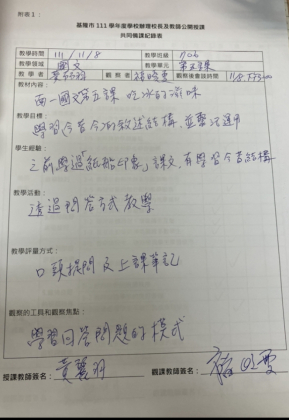 附表1：
基隆市 111 學年度學校辦理校長及教師公開授課
共同備課紀錄表
教學時間 111/11/8 教學班級 706
教學領域 國文 教學單元 第五課
教學者 觀察者 觀察後會談時間 11/8
教材內容：
南一國文第五課 吃冰的滋味
教學目標：
學習今昔今的敘述結構，並靈活運用
學生經驗：
之前學過「紙船印象」課文，有學習今昔結構
教學活動：
透過問答方式教學
教學評量方式：
口頭提問及上課筆記
觀察的工具和觀察焦點：
學習回答問題的模式
授課教師簽名： 黃馨羽 觀課教師簽名：